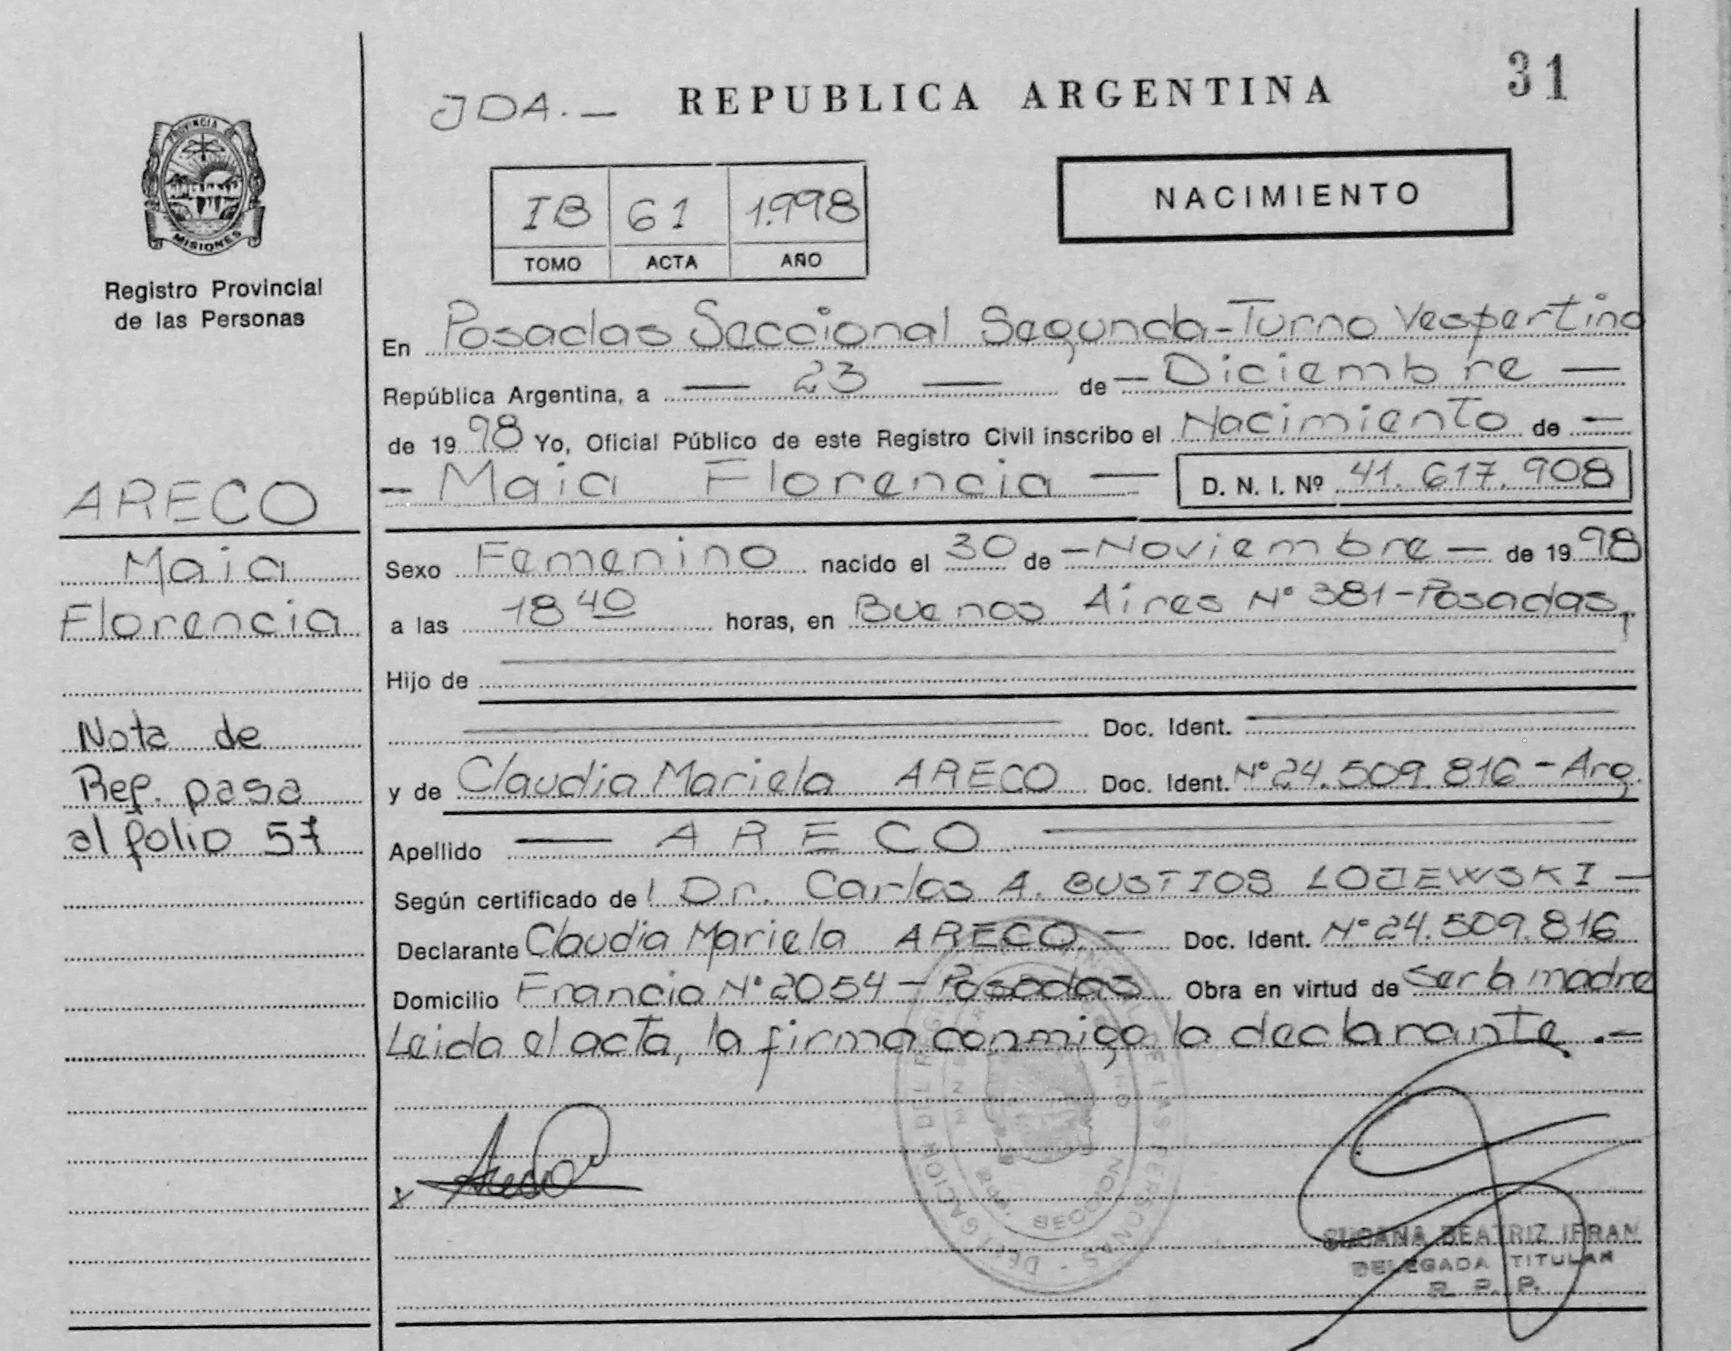 31
JDA.— REPUBLICA ARGENTINA
PROVINCIA DE
MISIONES
Registro Provincial
de las Personas
IB 61 1.998
TOMO ACTA AÑO
NACIMIENTO
En Posadas Seccional Segunda-Turno Vespertino
República Argentina, a — 23 — de — Diciembre —
de 1998 Yo, Oficial Público de este Registro Civil inscribo el Nacimiento de —
— Maia Florencia — D. N. I. Nº 41.617.908
ARECO
Maia
Florencia
Sexo Femenino nacido el 30 de — Noviembre — de 1998
a las 18 40 horas, en Buenos Aires Nº 381-Posadas,
Hijo de
Doc. Ident.
Nota de
Ref. pasa
al folio 57
y de Claudia Mariela ARECO Doc. Ident. Nº 24.509.816-Arg.
Apellido — ARECO —
Según certificado de l Dr. Carlos A. BUSTIOS LOJEWSKI —
Declarante Claudia Mariela ARECO.— Doc. Ident. Nº 24.509.816
Domicilio Francia Nº 2054-Posadas Obra en virtud de ser la madre
Leida el acta, la firma conmigo la declarante.—
x Areco
DELEGACION DEL REG PERSONAS
SECCION
SUSANA BEATRIZ IFRAN
DELEGADA TITULAR
R. P. P.